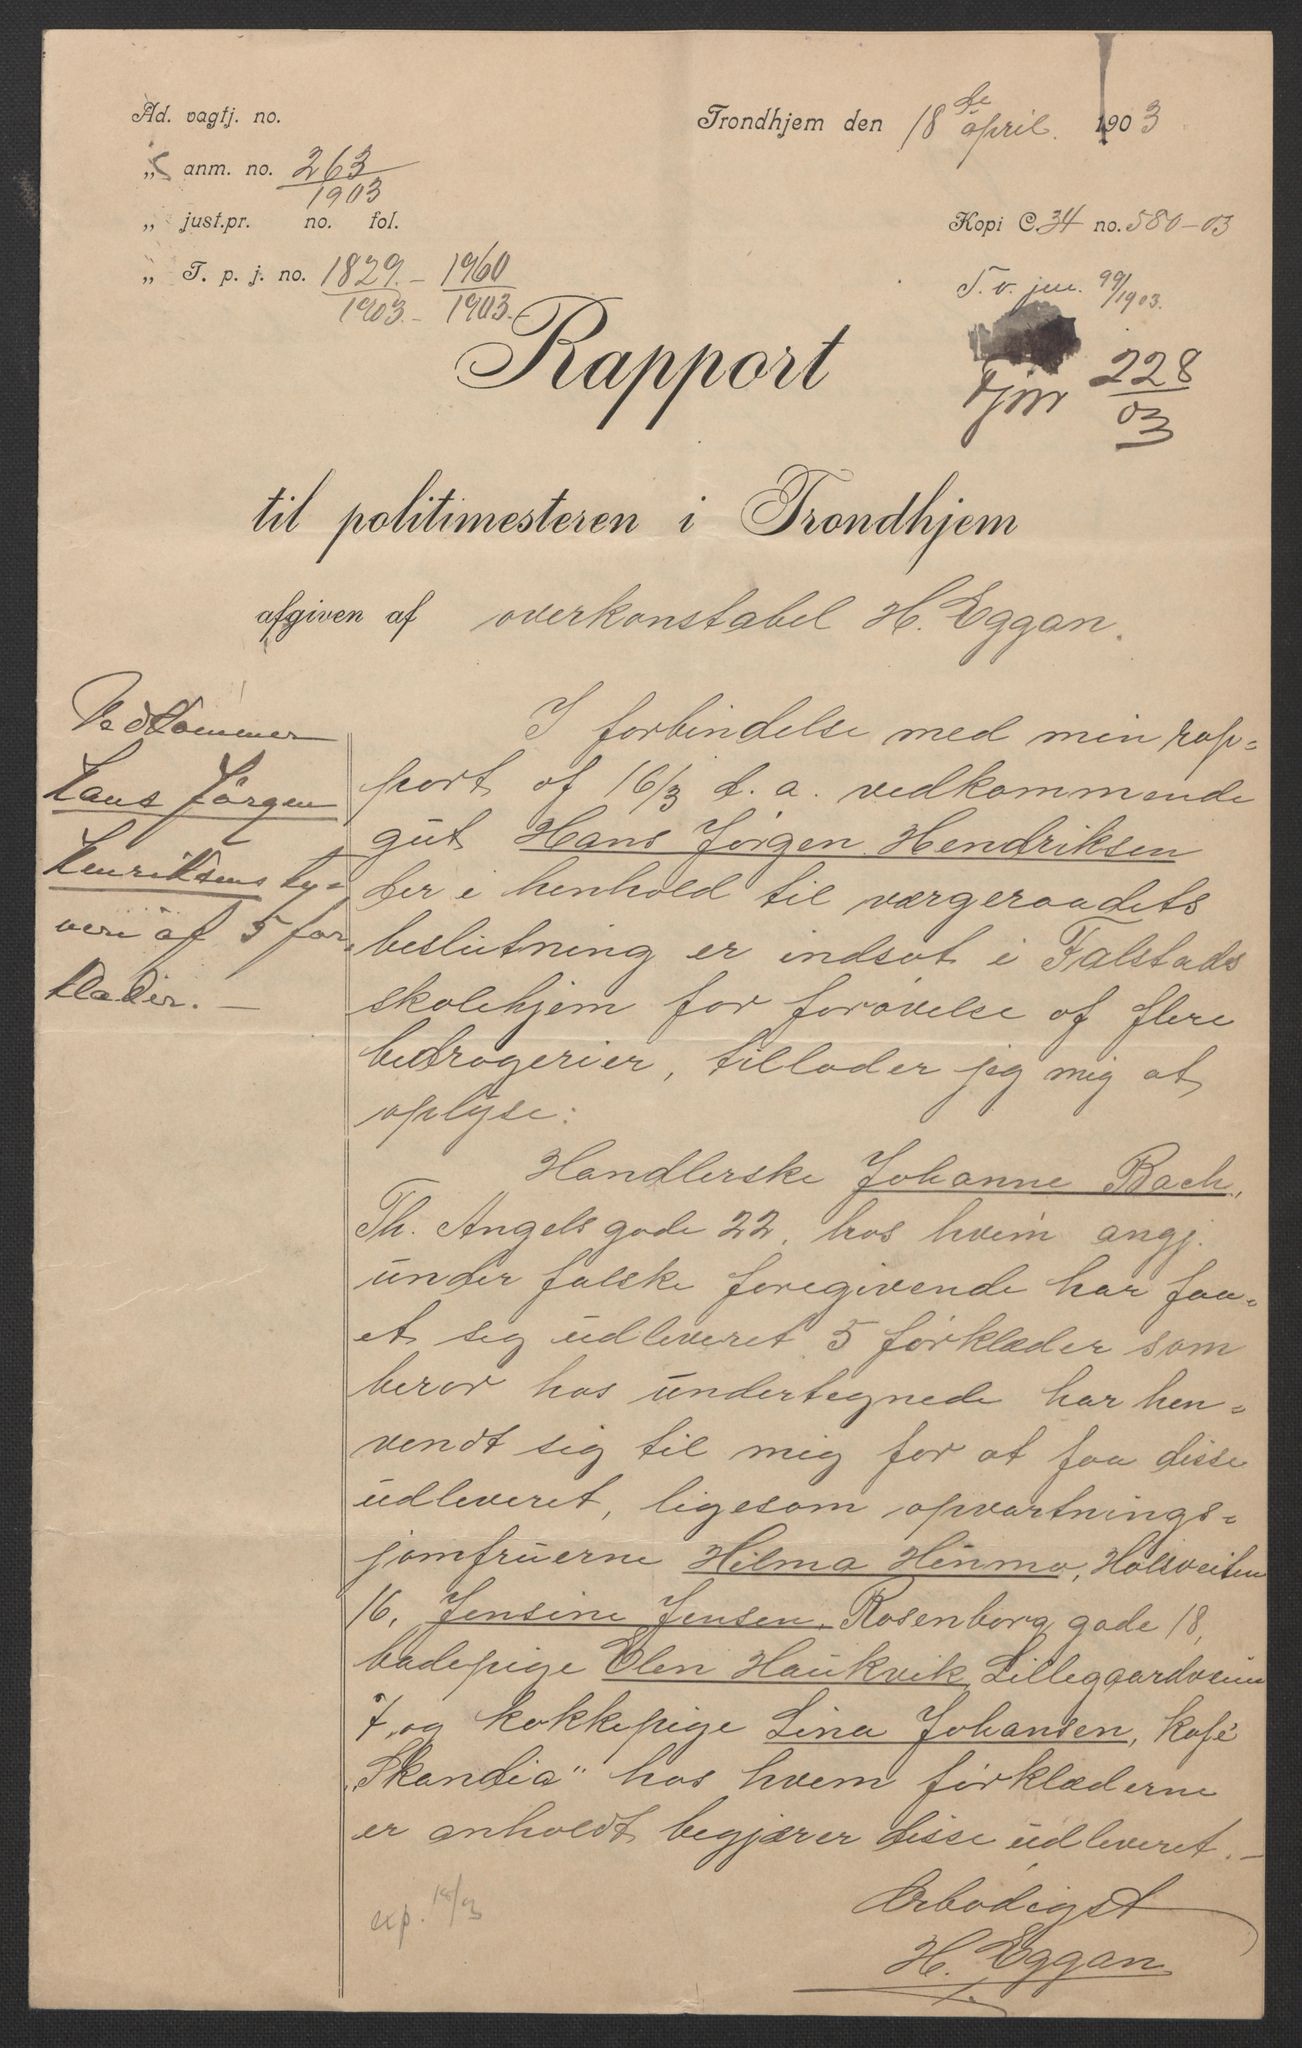 Ad. vagtj. no.
Trondhjem den 18de april. 1903
„ anm. no. 263/1903
„ just.pr. no. fol.
Kopi C. 34 no. 580-03
„ T. p. j. no. 1829/1903. - 1960/1903.
T. v. jnr. 99/1903.
Rapport
Tjnr 228/03
til politimesteren i Trondhjem
afgiven af overkonstabel H. Eggan.
Vedkommer
Hans Jörgen
Henriksens ty-
veri af 5 for-
klæder. —
I forbindelse med min rap-
port af 16/3 d. a. vedkommende
gut Hans Jørgen Hendriksen
der i henhold til værgeraadets
beslutning er indsat i Falstads
skolehjem for forøvelse af flere
bedragerier, tillader jeg mig at
oplyse:
Handlerske Johanne Bach,
Th. Angels gade 22, hos hvem angj.
under falske foregivende har faa-
et sig udleveret 5 forklæder som
beror hos undertegnede har hen-
vendt sig til mig for at faa disse
udleveret, ligesom opvartnings-
jomfruerne Hilma Hinmo, Holsveiten
16, Jensine Jensen, Rosenborg gade 18,
badepige Elen Haukvik Lillegaardsvein
7, og kokkepige Lina Johansen, kafé
„Skandia" hos hvem forklæderne
er anholdt begjærer disse udleveret. —
Ærbødigst
H. Eggan
exp. 18/3